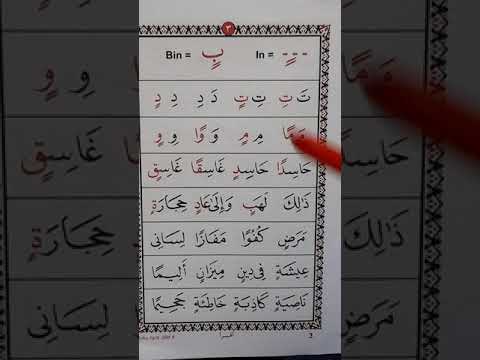 ٣
In = ـٍـ Bin = بٍ
تَ تِ تِ تٍ دَ دِ دِ دٍ
مَ مًا مِ مٍ وَ وًا وِ وٍ
حَاسِدًا حَاسِدٍ غَاسِقًا غَاسِقٍ
ذَالِكَ لَهَبٍ وَإِلَىٰ عَادٍ حِجَارَةٍ
مَرَضٍ كُفُوًا مَفَازًا لِسَانِى
عِيشَةٍ فِى دِينِ مِيزَانٍ أَلِيمًا
نَاصِيَةٍ كَاذِبَةٍ خَاطِئَةٍ جَحِيمًا
3